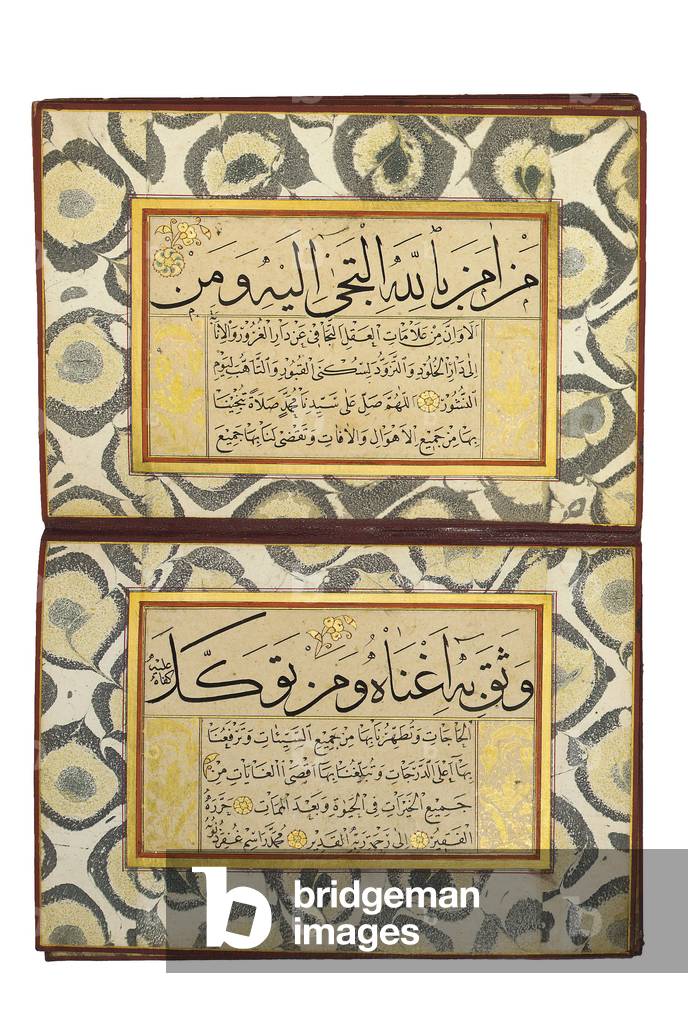 مَنْ اٰمَنَ بِاللّٰهِ الْتَجٰى اِلَيْهِ وَمَنْ
اَلَا وَاِنَّ مِنْ عَلَامَاتِ الْعَقْلِ التَّجَافِى عَنْ دَارِ الْغُرُورِ وَالْاِنَا
اِلٰى دَارِ الْخُلُودِ وَالتَّزَوُّدَ لِسُكْنَى الْقُبُورِ وَالتَّاَهُّبَ لِيَوْمِ
النُّشُورِ اَللّٰهُمَّ صَلِّ عَلٰى سَيِّدِنَا مُحَمَّدٍ صَلَاةً تُنْجِينَا
بِهَا مِنْ جَمِيعِ الْاَهْوَالِ وَالْاٰفَاتِ وَتَقْضِى لَنَا بِهَا جَمِيعَ
وَثِقَ بِهِ اَغْنَاهُ وَمَنْ تَوَكَّلَ عَلَيْهِ كَفَاهُ
الْحَاجَاتِ وَتُطَهِّرُنَا بِهَا مِنْ جَمِيعِ السَّيِّئَاتِ وَتَرْفَعُنَا
بِهَا اَعْلَى الدَّرَجَاتِ وَتُبَلِّغُنَا بِهَا اَقْصَى الْغَايَاتِ مِنْ
جَمِيعِ الْخَيْرَاتِ فِى الْحَيٰوةِ وَبَعْدَ الْمَمَاتِ حَرَّرَهُ
الْفَقِيرُ اِلٰى رَحْمَةِ رَبِّهِ الْقَدِيرِ مُحَمَّد رَاسِم غُفِرَ ذُنُوبُهُ
bridgeman
images